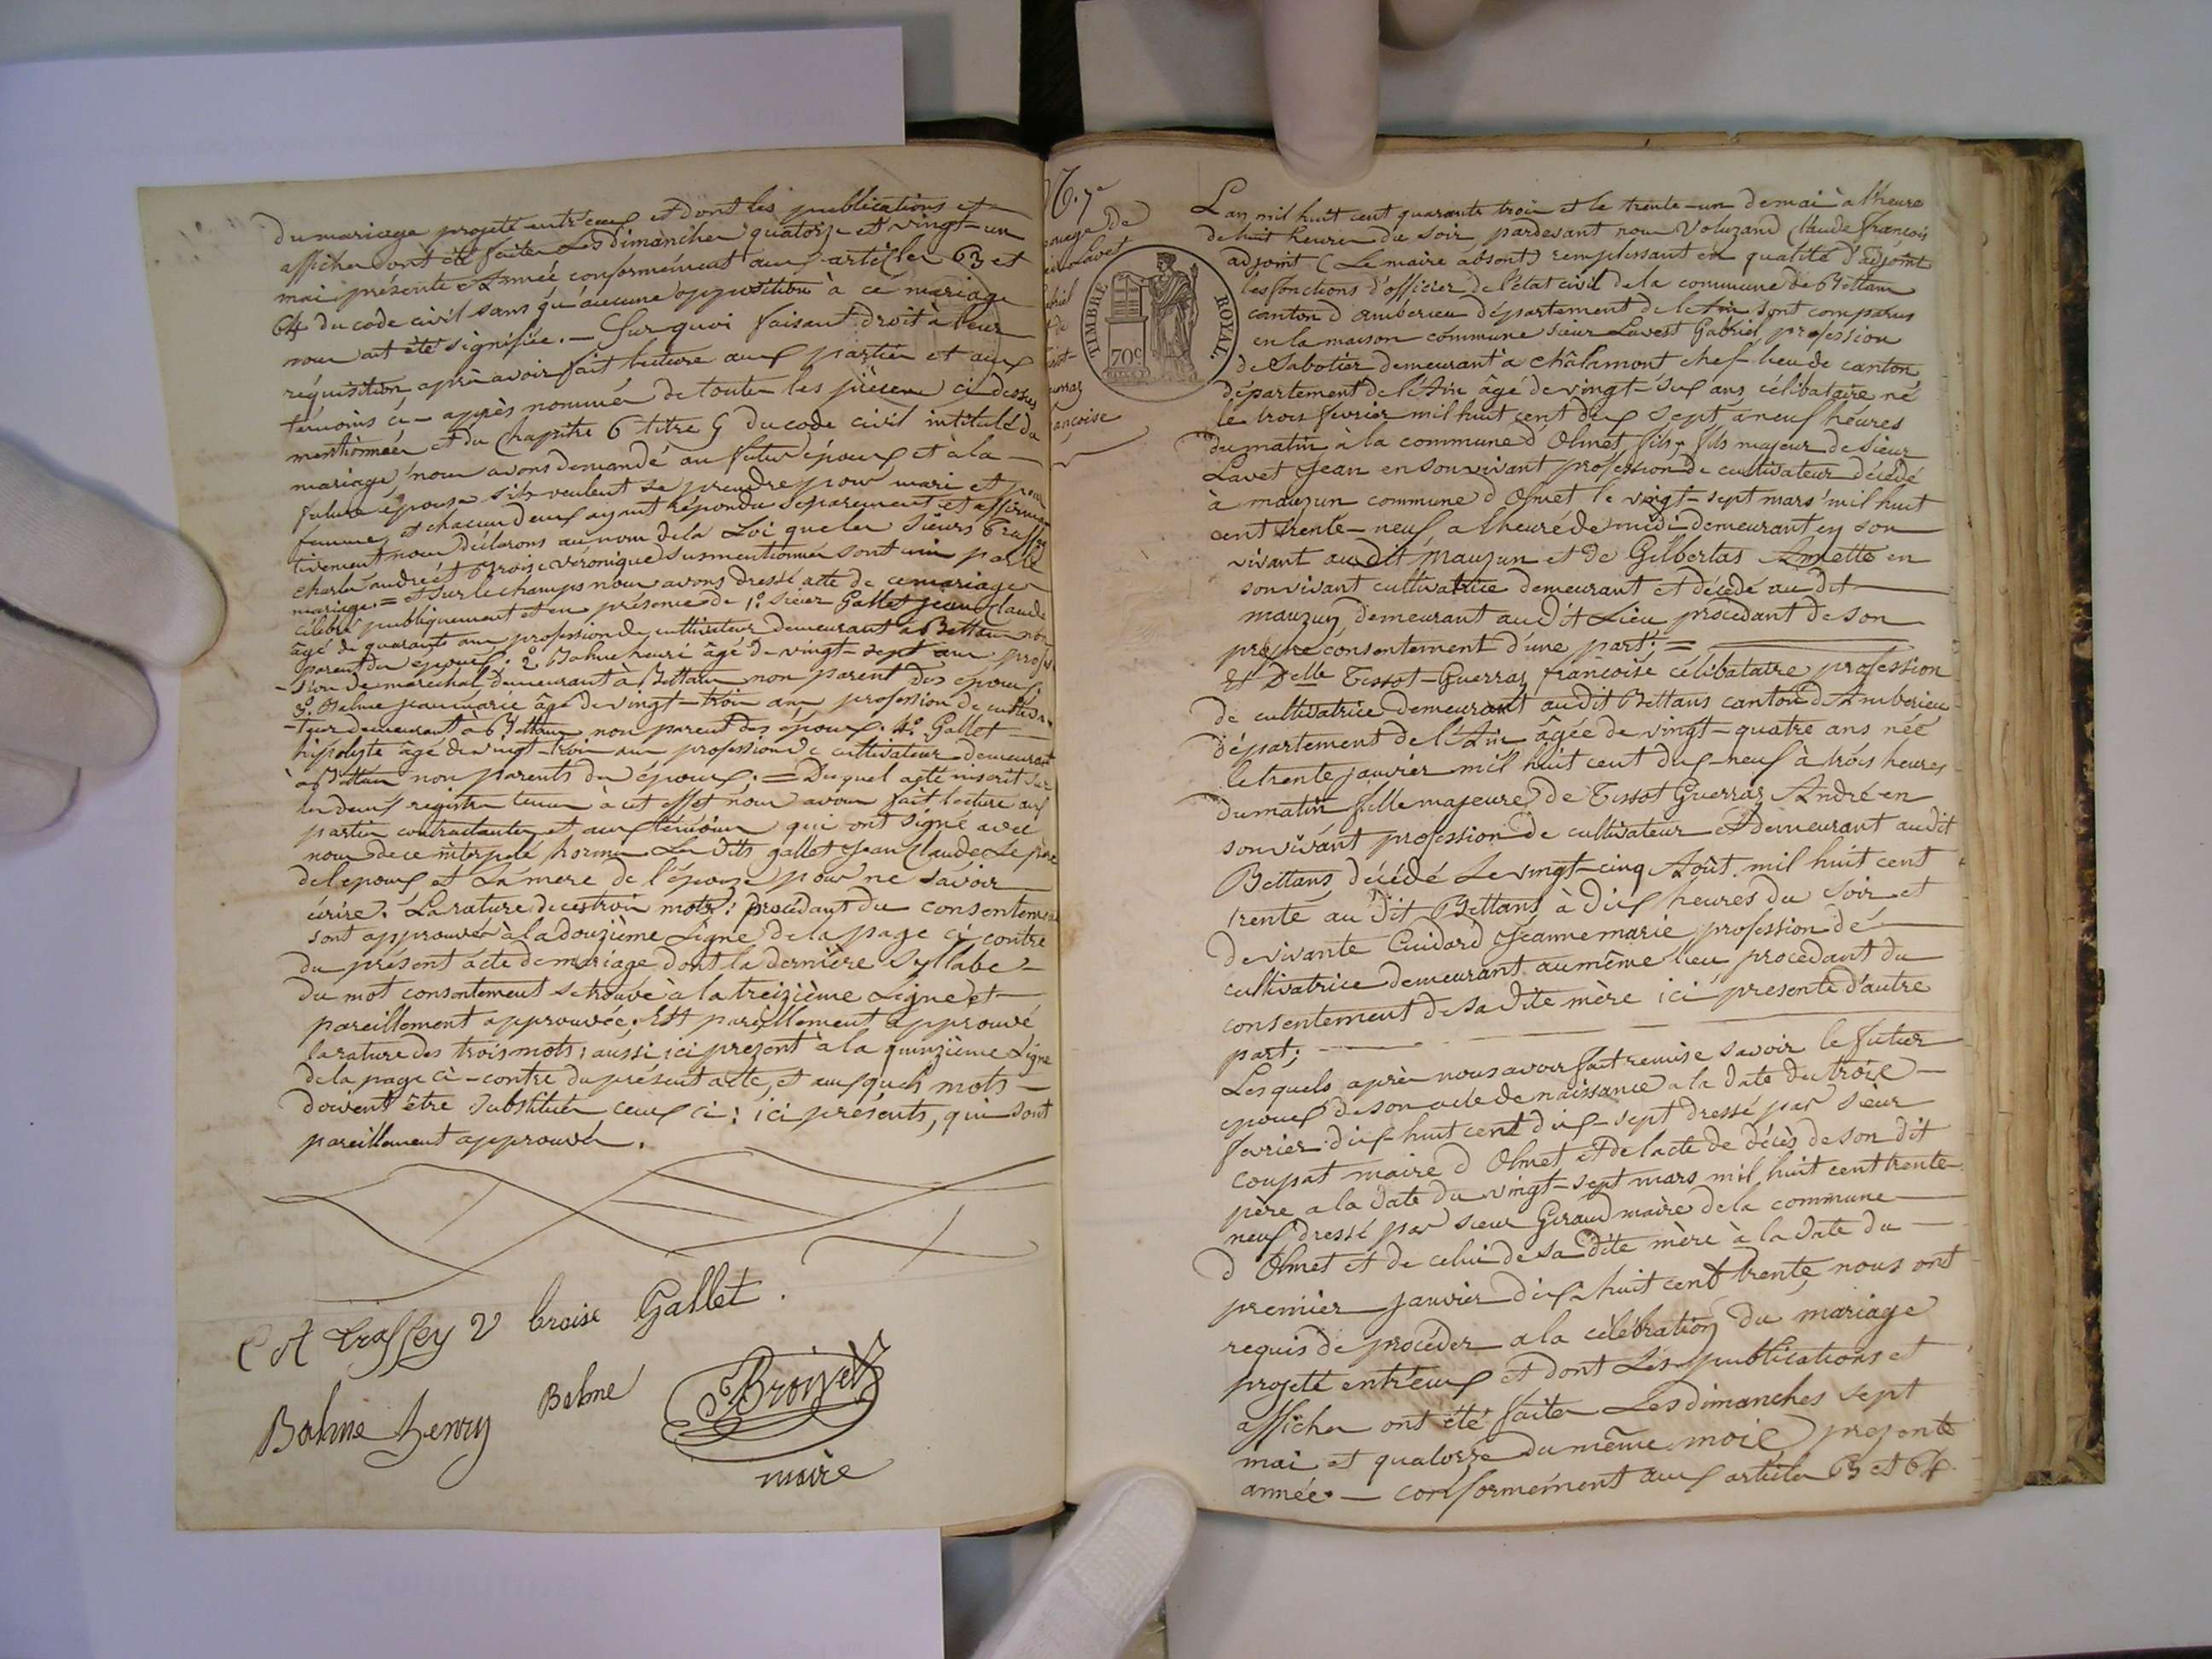 du mariage projeté entr'eux et dont les publications et
affiches ont été faites Les dimanches quatorze et vingt-un
mai présente Année conformément aux articles 63 et
64 du code civil sans qu'aucune opposition à ce mariage
nous ait été signifiée. — Sur quoi faisant droit à leur
réquisition après avoir fait lecture aux parties et aux
témoins ci-après nommés de toutes les pièces ci-dessus
mentionnées et du Chapitre 6 titre 5 du code civil intitulé du
mariage nous avons demandé au futur époux et à la
future épouse s'ils veulent se prendre pour mari et pour
femme, et chacun deux ayant répondu séparement et affirma
tivement nous déclarons au nom de la Loi que les sieurs
charles andré et Broise véronique susmentionnés sont unis par le
mariage. = et sur le champs nous avons dressé acte de ce mariage
célébré publiquement et en présence de 1.° sieur Gallet jean Claude
âgé de quarante ans profession de cultivateur demeurant à Bettans non
parent des époux; 2.° Balme henri âgé de vingt-sept ans profes
-sion de maréchal demeurant à Bettans non parent des époux.
3.° Balme jean marie âgé de vingt-trois ans profession de cultiva-
-teur demeurant à Bettans non parent des époux. 4.° Gallet
hipolyte âgé de vingt-trois ans profession de cultivateur demeurant
à Bettans non parents des époux; = Duquel acte inscrit sur
les deux registres tenus à cet effet nous avons fait lecture aux
parties contractantes et aux témoins qui ont signé avec
nous de ce interpelé hormis Le dits gallet Jean Claude Le père
de l'epoux et La mere de l'épouse pour ne savoir
écrire. La rature de ces trois mots: procédant du consentem
sont approuvés à la douzième Ligne de la page ci-contre
du présent acte de mariage dont la dernière syllabe
du mot consentement se trouve à la treizième Ligne et
pareillement approuvée. Est pareillement approuvé
la rature des trois mots: aussi ici present à la quinzième Ligne
de la page ci-contre du présent acte, et auxquels mots
doivent être substitués ceux ci: ici présents, qui sont
pareillement approuvés.
C A Traffey V broise Gallet.
Balme henry Balme Broizet
maire
N.° 7.e
Lavet
briel
de
issot-
uerraz
ançoise
TIMBRE ROYAL.
70c
L'an mil huit cent quarante trois et le trente-un de mai à l'heure
de huit heures du soir, pardevant nous Voluzand Claude françois
adjoint (Le maire absent) remplissant en qualité d'adjoint
les fonctions d'officier de l'état civil de la commune de Bettans
canton d'ambérieu département de l'Ain sont comparus
en la maison commune sieur Lavest Gabriel profession
de Sabotier demeurant à châlamont chef-lieu de canton
département de l'Ain âgé de vingt-six ans, célibataire né
le trois février mil huit cent dix sept à neuf heures
du matin à la commune d'Olmet, fils, fils majeur de sieur
Lavet Jean en son vivant profession de cultivateur décédé
à mauzun commune d'Olmet le vingt-sept mars mil huit
cent trente-neuf à l'heure de midi demeurant en son
vivant audit Mauzun et de Gilbertas Amette en
son vivant cultivatrice demeurant et décédé au dit
mauzun, demeurant au dit Lieu procédant de son
propre consentement d'une part; =
Et Delle Tissot-Guerraz françoise célibataire profession
de cultivatrice demeurant audit Bettans canton d'Ambérieu
département de l'Ain âgée de vingt-quatre ans née
le trente janvier mil huit cent dix-neuf à trois heures
du matin fille majeure de Tissot Guerraz André en
son vivant profession de cultivateur et demeurant au dit
Bettans décédé Le vingt-cinq Août mil huit cent
trente au dit Bettans à dix heures du soir et
de vivante Cuidard Jeanne marie profession dé
cultivatrice demeurant au même lieu procédant du
consentement de sa dite mère ici présente d'autre
part;
Lesquels après nous avoir fait remise savoir le futur
epoux de son acte de naissance à la date du trois
fevrier dix-huit cent dix-sept dressé par sieur
Coupat maire d'Olmet et de l'acte de décès de son dit
père à la date du vingt-sept mars mil huit cent trente-
neuf dressé par sieur Geraud maire de la commune
d'Olmet et de celui de sa dite mère à la date du
premier janvier dix-huit cent trente, nous ont
requis de procéder à la célébration du mariage
projeté entr'eux et dont Les publications et
affiches ont été faites Les dimanches sept
mai et quatorze du même mois présente
année. — conformément aux articles 63 et 64